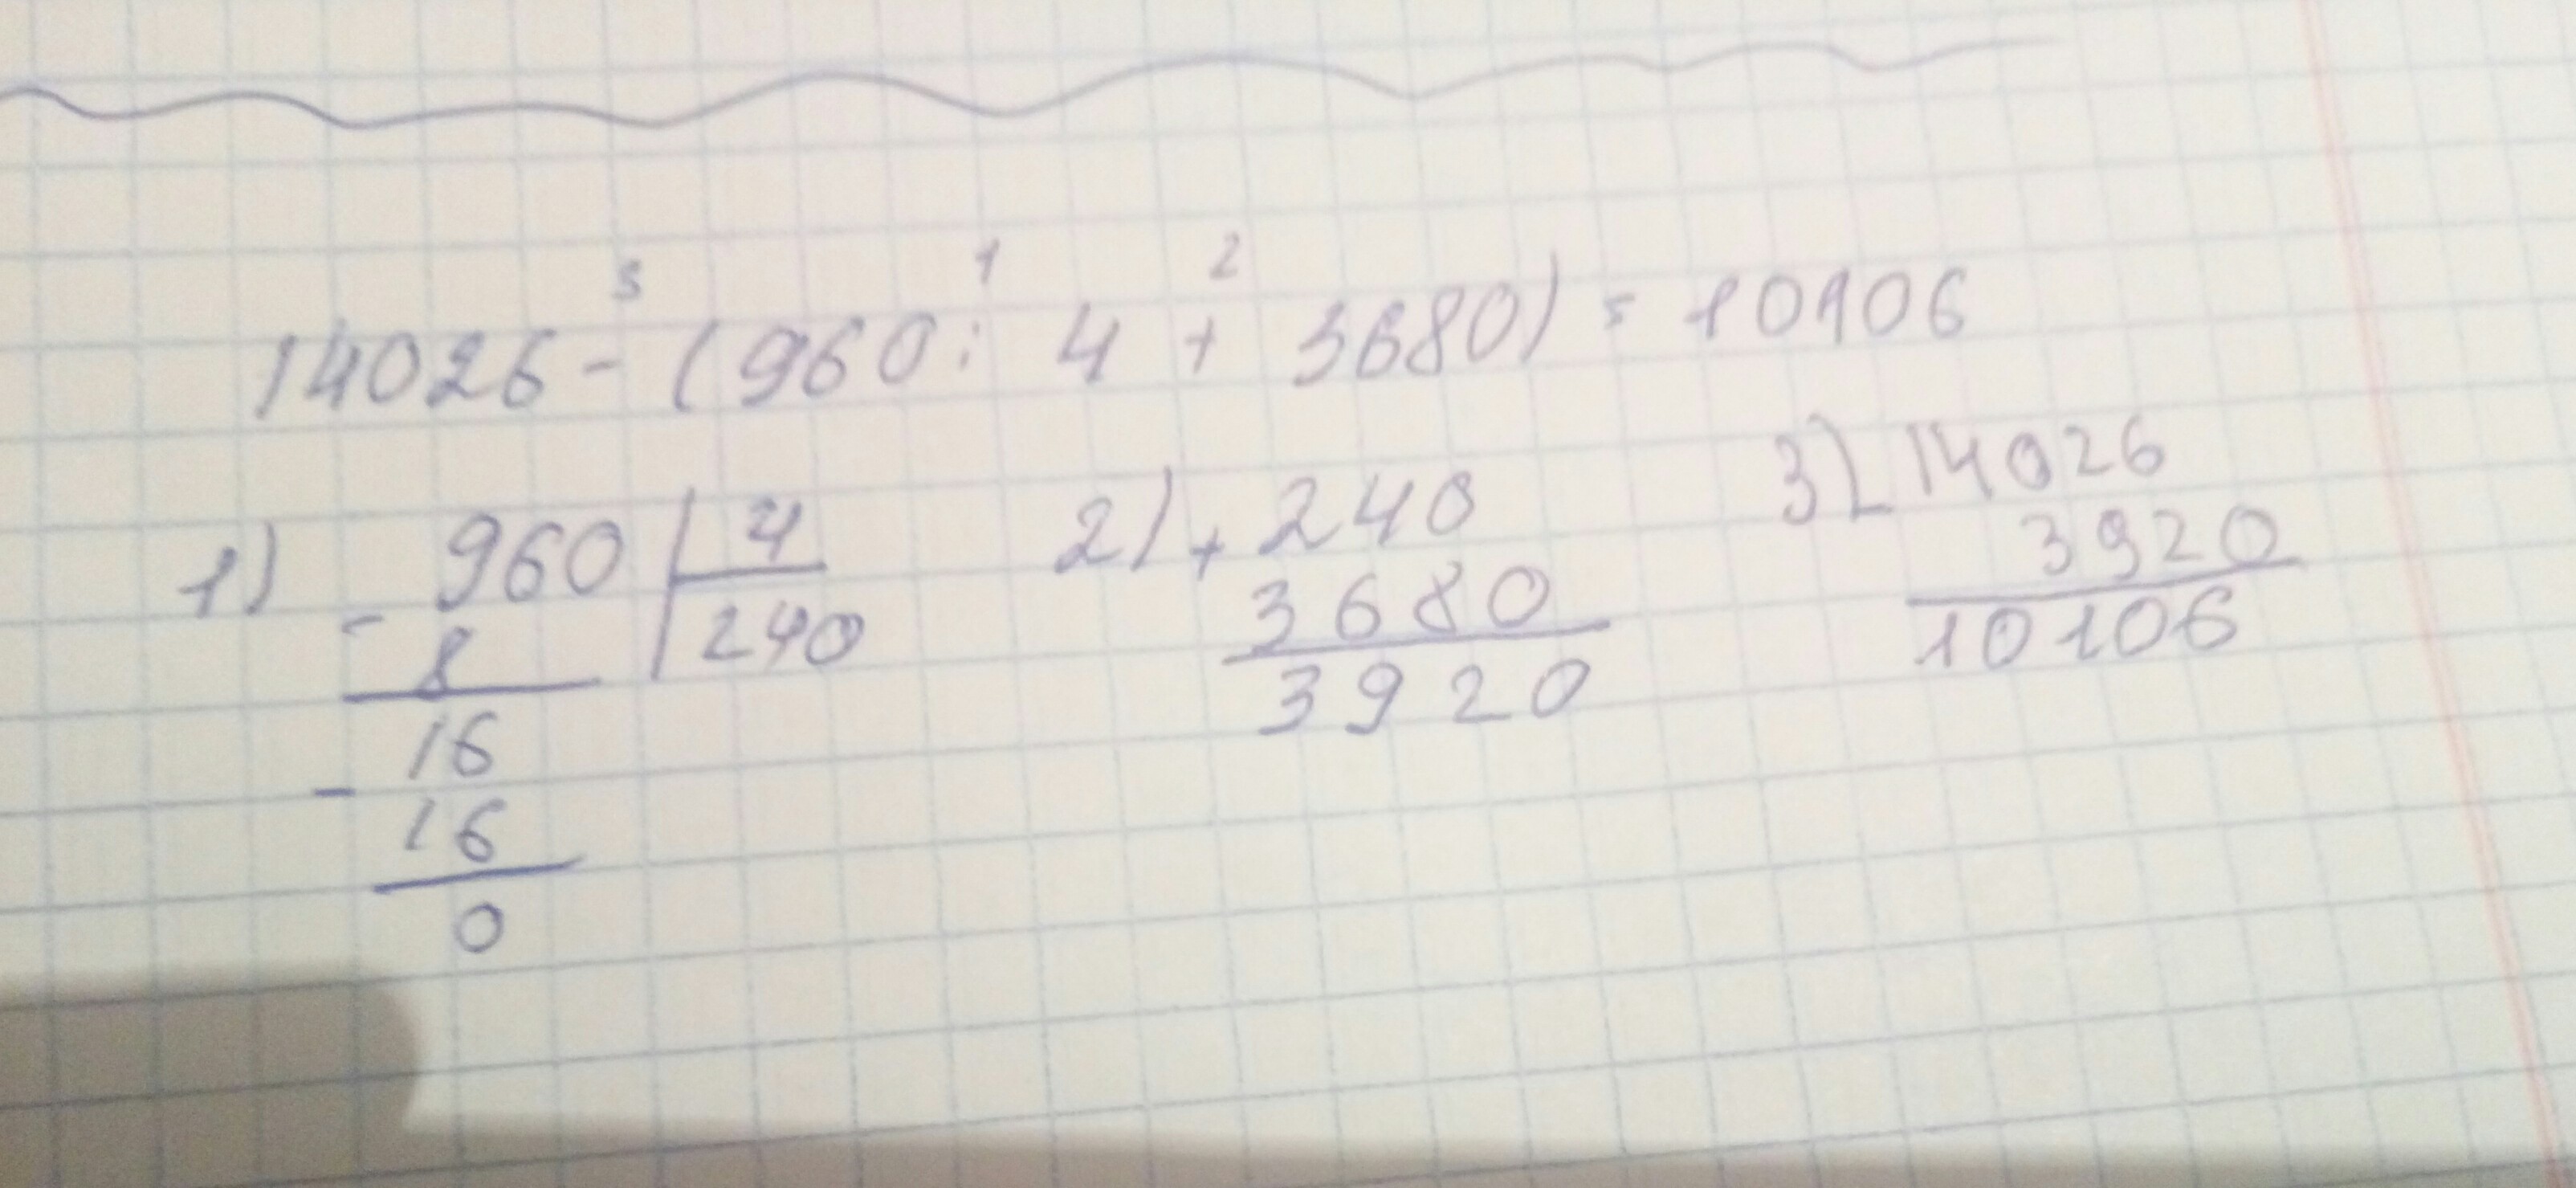 3 1 2
14026 - (960 : 4 + 3680) = 10106
1) - 960 | 4
8 | 240
16
- 16
0
2) + 240
3680
3920
3) - 14026
3920
10106